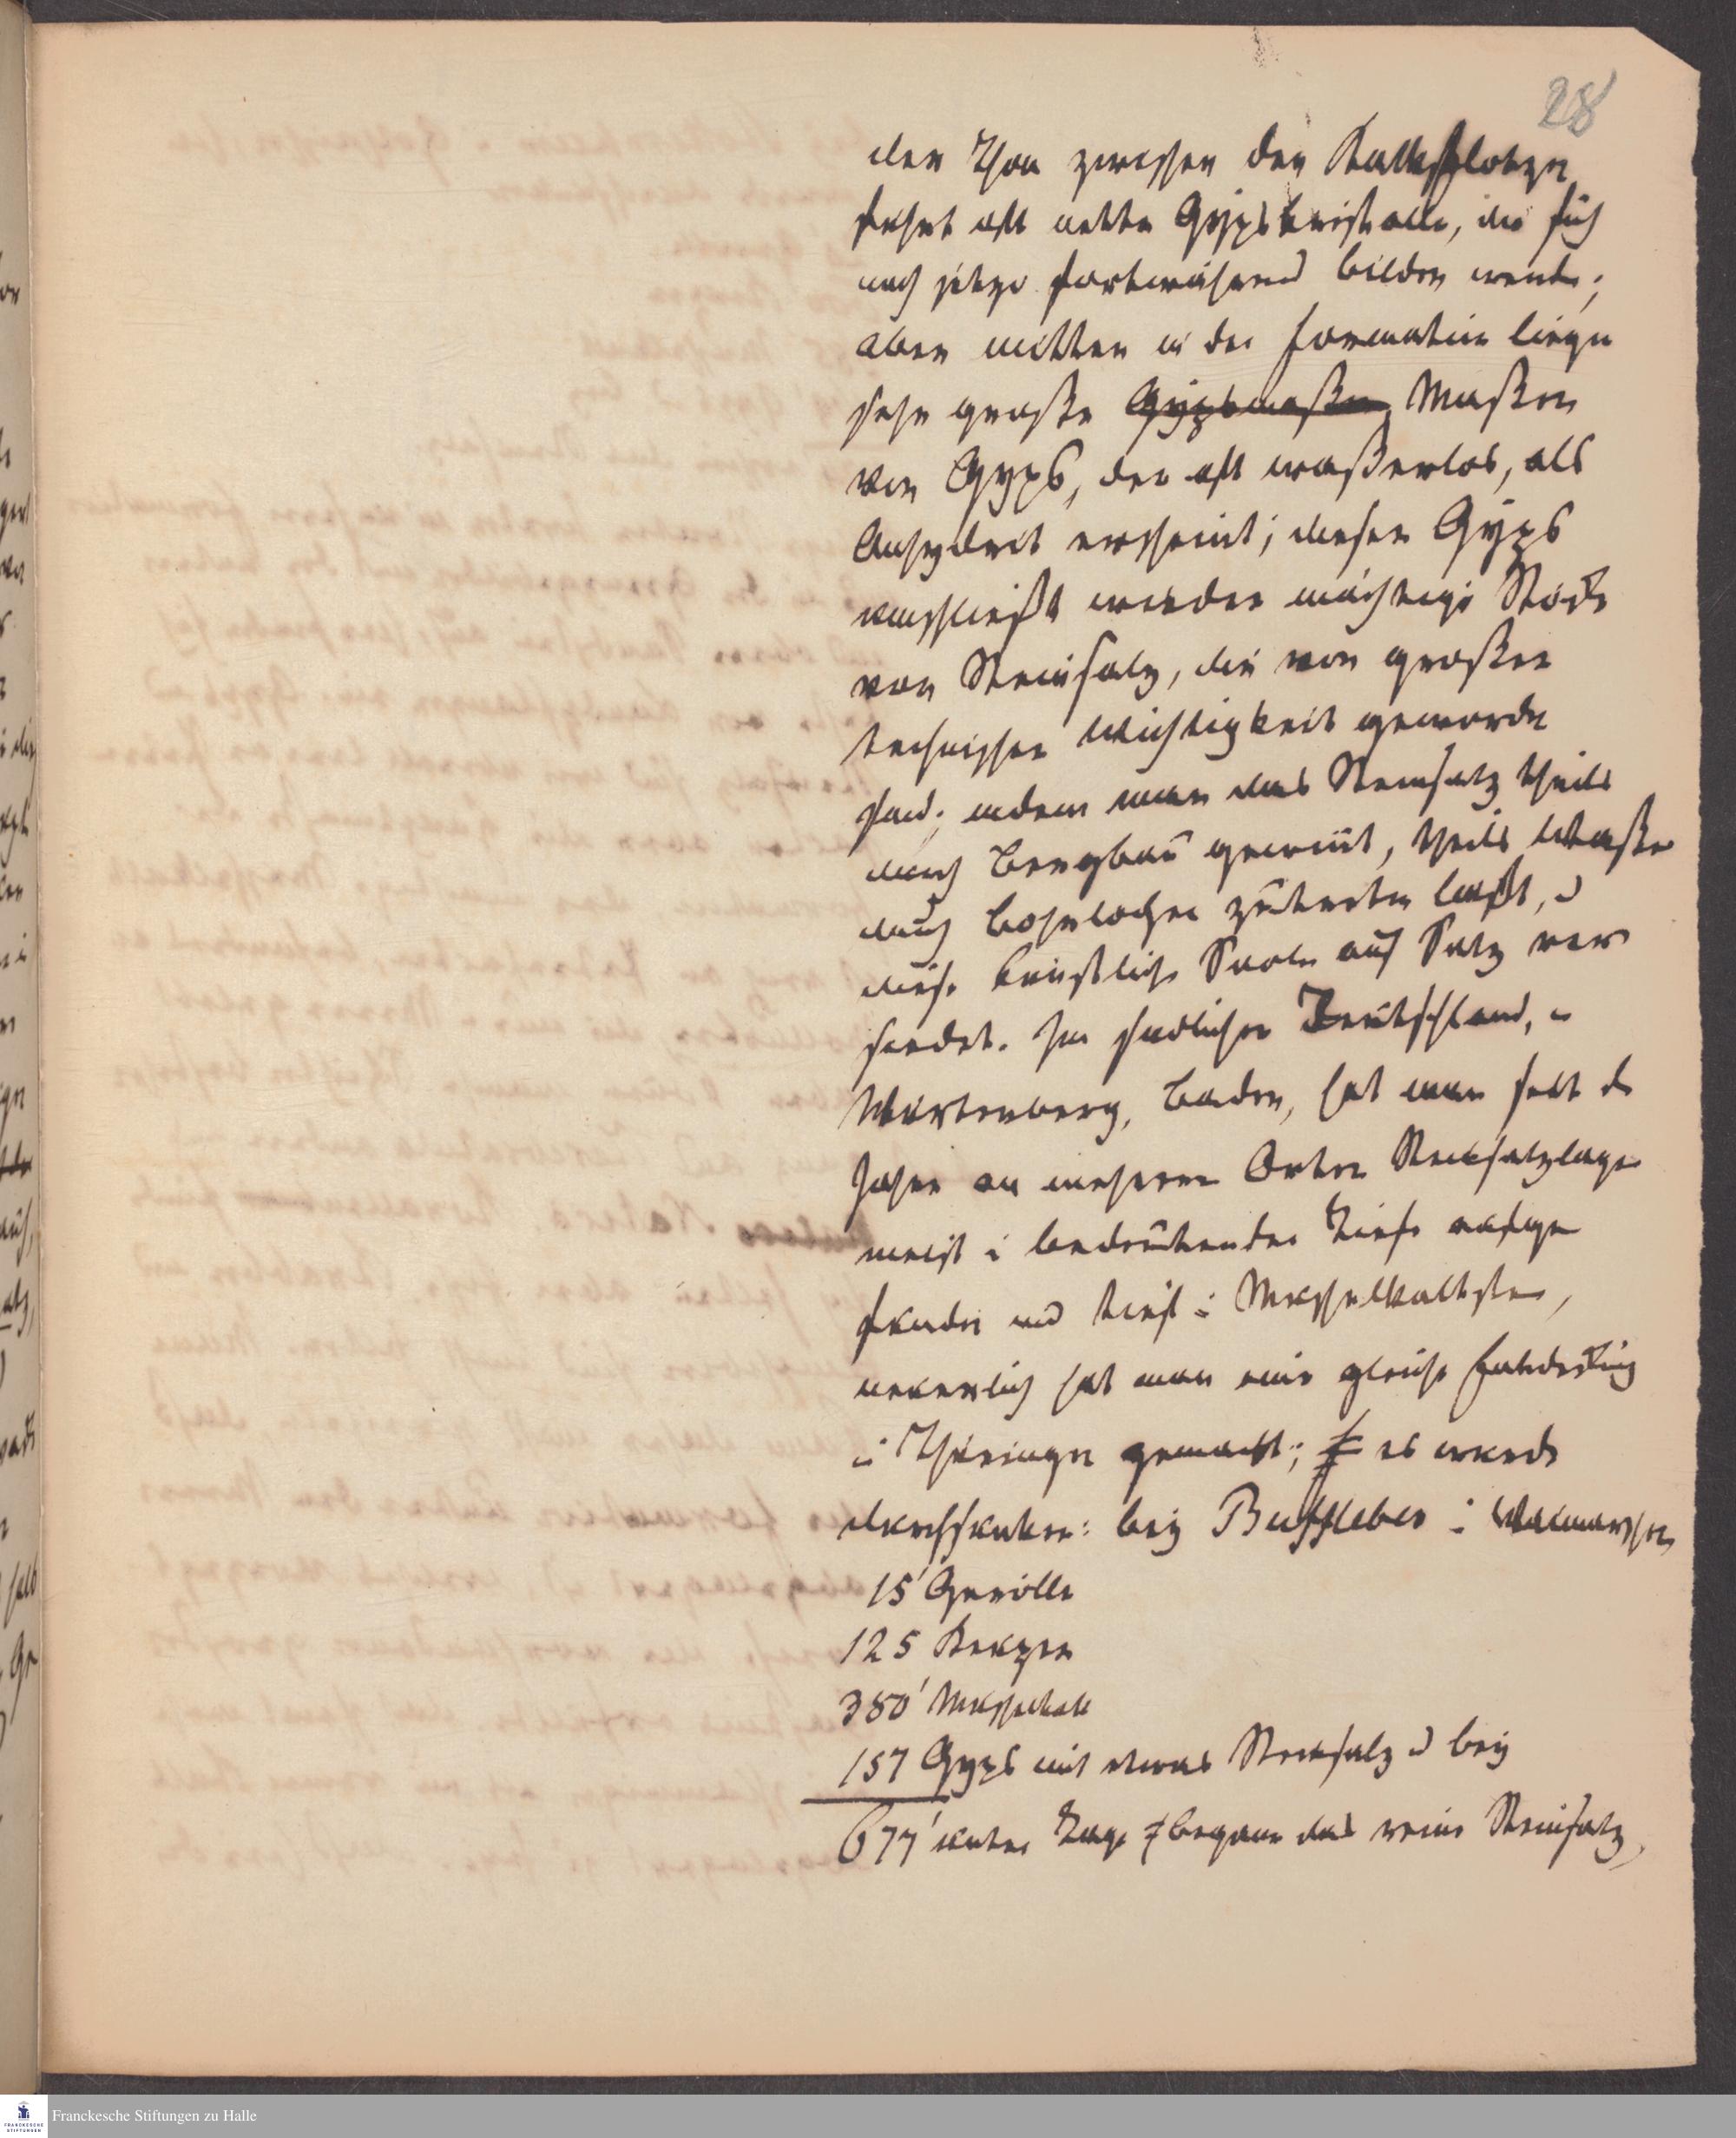 28
der Thon zwischen den Kalkflötzen
führt oft nette Gypskristalle, die sich
noch jetzo fortwährend bilden werde;
aber mitten in der Formation liegen
sehr große Gypsmaßen Maßen
von Gyps, der oft waßerlos, als
Anhydrit erscheint; dieser Gyps
umschließt wieder mächtige Stöcke
von Steinsalz, die von großer
technischer Wichtigkeit geworden
sind; indem man das Steinsalz theils
durch Bergbau gewint, theils Waßer
durch Bohrlöcher zutreten läßt, u
diese künstliche Soole auf Salz ver
siedet. Im südlichen Deutschland, in
Würtenberg, Baden, hat man seit
Jahren an mehreren Orten Steinsalzlager
meist i bedeutender Tiefe aufge
funden und tief i Muschelkalkstein,
neuerlich hat man eine gleiche Entdeckung
in Thüringen gemacht; es wurde
durchsunken: bey Buffleben i Weimarschen
15' Gerölle
125 Keuper
380' Muschelkalk
157 Gyps mit etwas Steinsalz u bey
677' unter Tage begann das reine Steinsalz,
Franckesche Stiftungen zu Halle